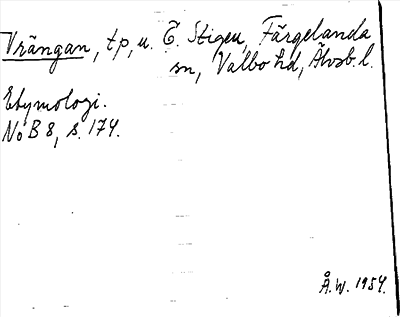 Vrängan, tp, u. Ö. Stigen, Färgelanda
sn, Valbo hd, Älvsb. l.
Etymologi.
NoB 8, s. 174.
Å.W. 1954.